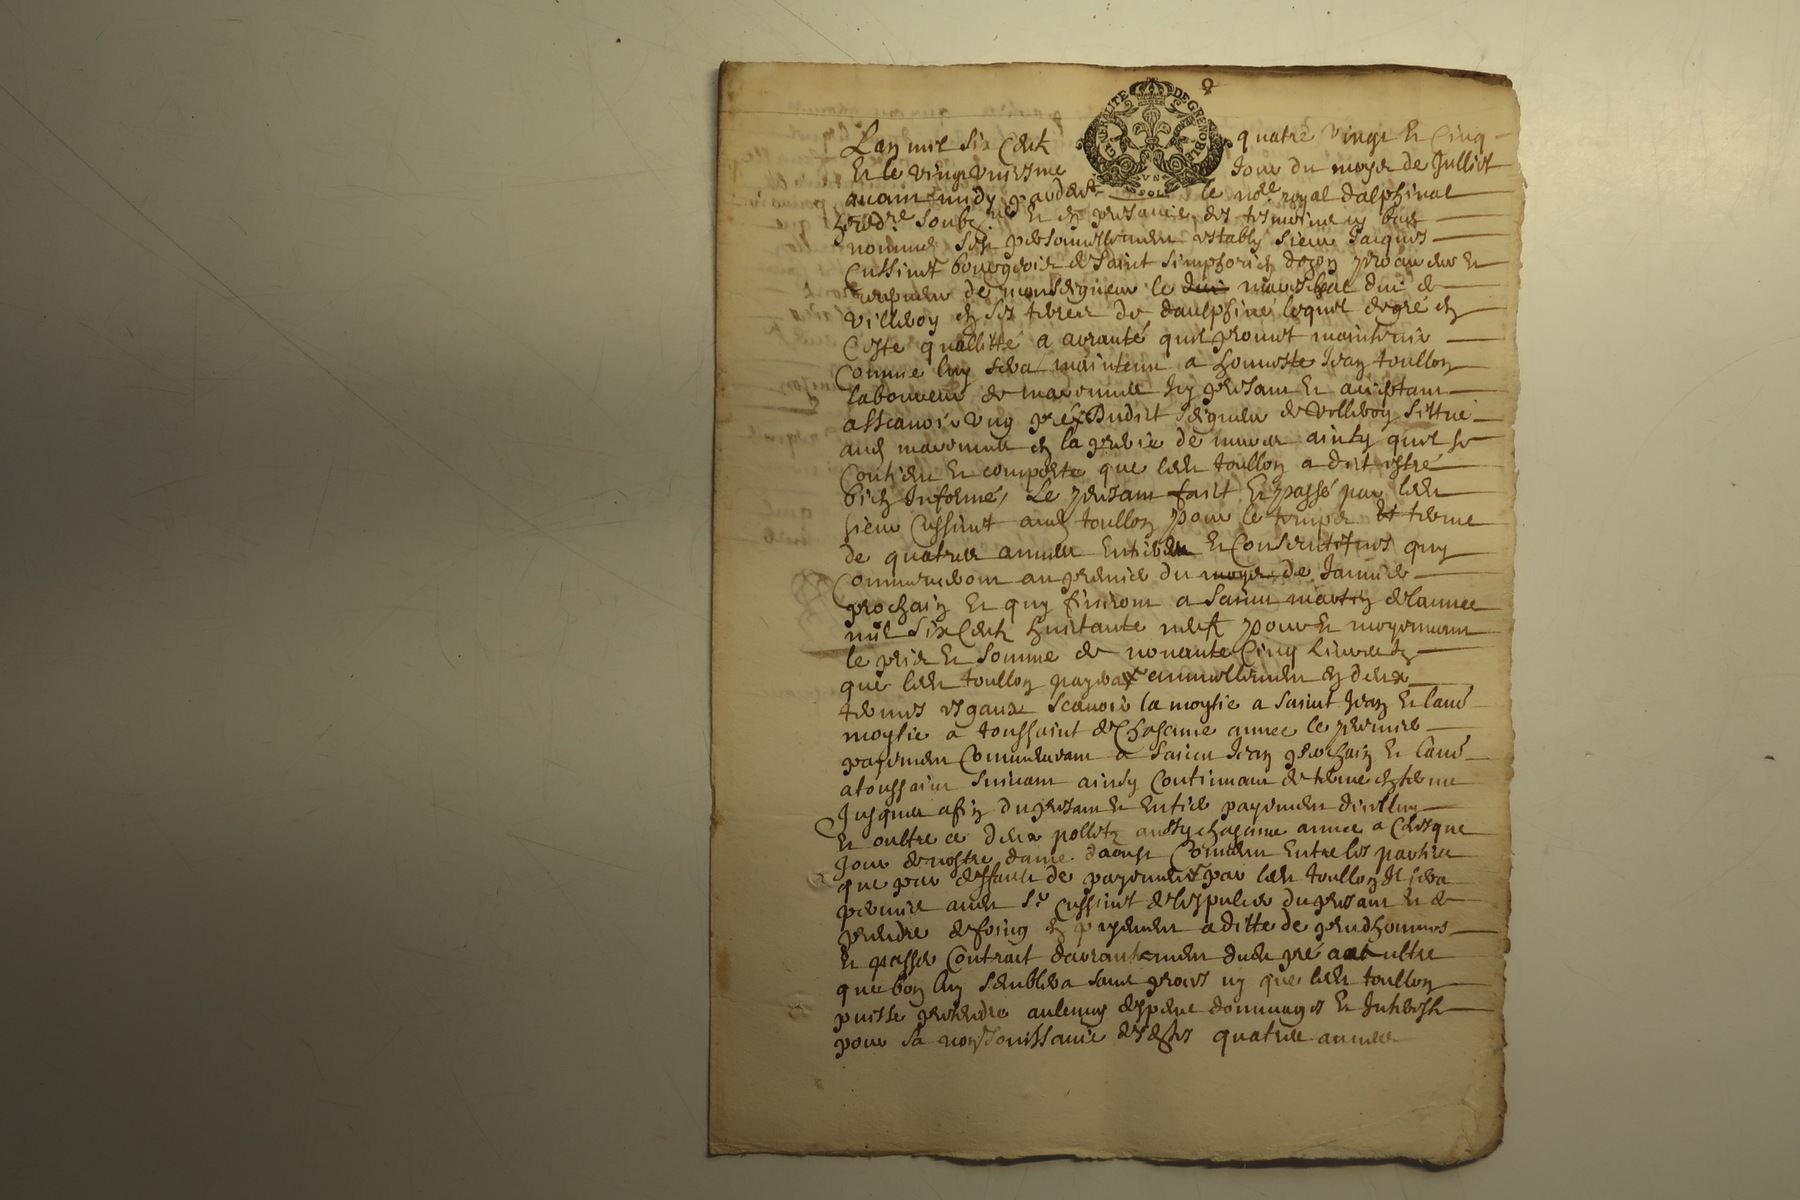 GNERALITE DE GRENOBLE
VN SOL
Lan mil six Centz quatre vingt et Cinq
Et le vingt uniesme Jour du moys de Juillet
avant midy pardevt le nore royal dalphinal
heredre soubzne et en presance des tesmoins cy bas
nommes sest personnellement estably sieur Jacques
Cussinet bourgeois de Saint Simphorien dozon procureur et
de monseigneur le mareschal duc de
Villeroy en ses terres de dauphiné lequel de gré en
Ceste quallitté a arranté quil promet maintenir
Comme luy sera maintenu a honneste Jean toullon
laboureur de marennes Icy presant et aceptant
assavoir Ung pré dudict seigneur de Villeroy sittué
aud marennes en la prerie de ainsy quil se
Contient et comporte que ledt toullon a dict estre
bien Informé, Le presant faict et passé par ledt
sieur Cussinet aud toullon pour le temps et terme
de quatre annees Entieres et Consecutives quy
Commanceront au premier du moys de Janvier
prochain et quy finiront a Saint martin de lannee
mil six Centz huictante neuf pour et moyennant
le prix et somme de nonante Cinq livres
que ledt toullon payera annuellement en deux
termes esgaux scavoir la moytie a Saint Jean et laue
moytie a toussaint de Chascune annee le premier
payement Commancant a Saint Jean prochain et laue
a toussaint suivant ainsy Continuant de terme en terme
Jusques a fin du presant et Entier payement dicelluy
Et oultre ce deux polletz aussy chascune annee a Chesque
Jour de nostre dame daoust Convenu Entre les parties
que par deffault de payement par ledt toullon Il sera
permis audt Sr Cussinet de lexpulser du presant et de
prendre de foing en payement a ditte de preudhommes
et passer Contrait darrantement dudt pré a aultre
que bon luy semblera sans que ledt toullon
puisse pretendre aulcuns despens dommages et Interestz
pour sa non Jouissance desdites quatre annees